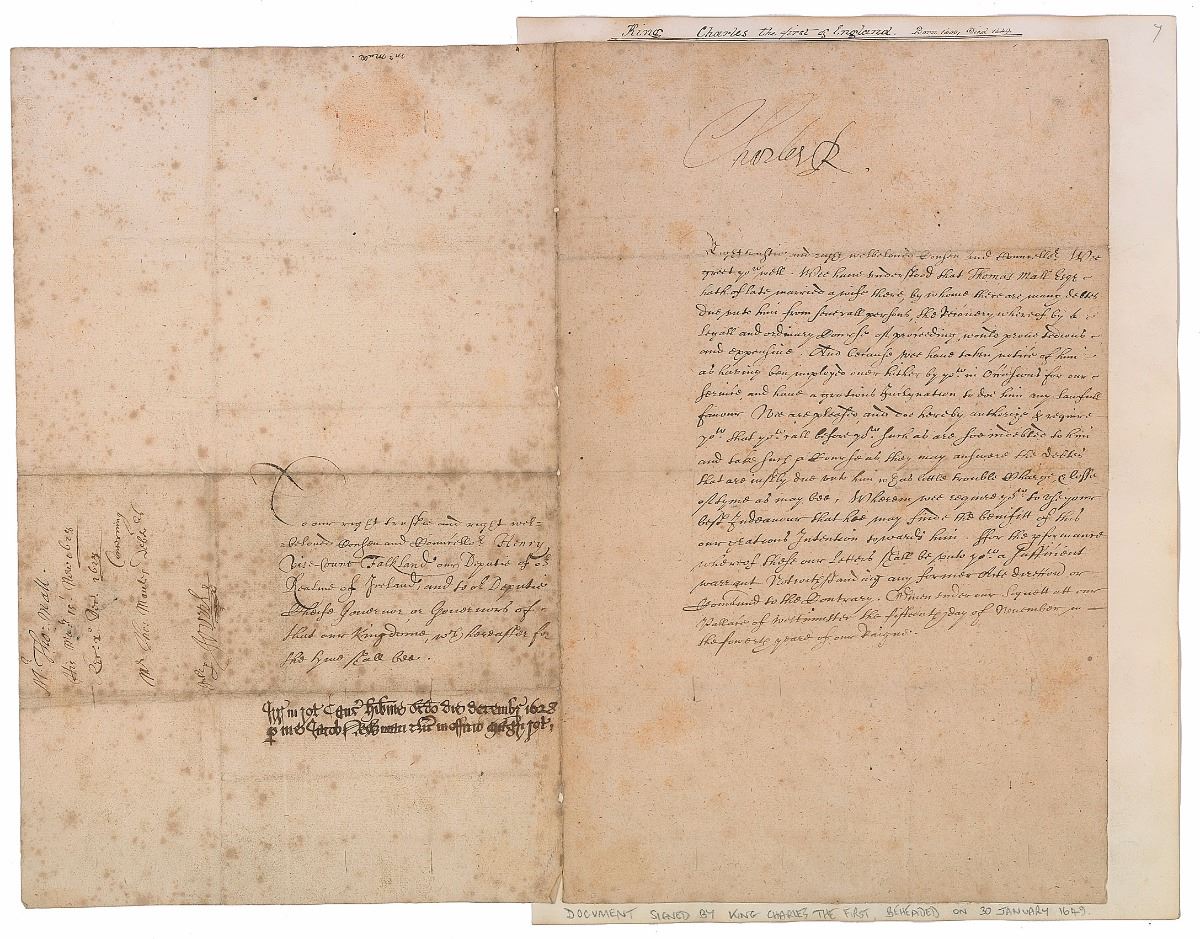 King Charles the first of England. Born 1600, Died 1649.
7
Charles R
Right trustie and right welbeloved Cousin and Councellor, Wee
greet you well. Wee have understood that Thomas Mall Esqr
hath of late married a wife there, by whome there are many debts
due unto him from severall persons, the recovery whereof by a
legall and ordinary Course of proceeding, would prove tedious
and expensive. And because wee have taken notice of him
as having ben imployed over hither by you in Occasions for our
service and have a gratious Inclynation to doe him any lawfull
favour We are pleased, and doe hereby authorize & require
you that you call before you such as are soe indebted to him
and take such a Course as they may answere the debts
that are iustly due unto him wth as little trouble Charge, & losse
of tyme as may bee, Wherein wee require you to use your
best Endeavour that hee may finde the benifitt of this
our gratious Intention towards him. ffor the pformance
whereof these our Letters shall be unto you a sufficient
warrant Notwithstanding any former direction or
Command to the Contrary. Given under our Signett att our
Pallace of westminster the fifteenth day of November in
the fowerth yeare of our Raigne.
To our right trustie and right wel-
beloved Cousin and Councellor Henry
Viscount Falkland our Deputie of or
Realme of Ireland, and to or Deputie
Cheife Governor, or Governors of
that our Kingdome, wch hereafter for
the tyme shall bee.
decembr 1628
Mr Tho: Mall.
his Mats re: Novo: 1628
1628
Conserning
DOCUMENT SIGNED BY KING CHARLES THE FIRST. BEHEADED ON 30 JANUARY 1649.